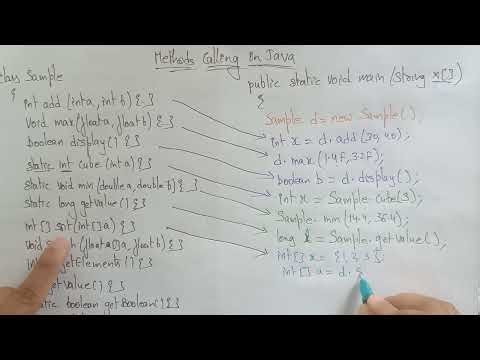 Methods Calling In Java
class Sample
{
int add (int a, int b) { }
void max (float a, float b) { }
boolean display () { }
static int cube (int a) { }
static void min (double a, double b) { }
static long getvalue () { }
int [] sort (int [] a) { }
void (float [] a, float b) { }
getElements () { }
getvalue () { }
static boolean getBoolean () { }
public static void main (String x[])
{
Sample d = new Sample ();
int x = d. add (30, 40);
d. max (1.4F, 3.2F);
boolean b = d. display ();
int r = Sample. cube (3);
Sample. min (14.4, 36.4);
long l = Sample. getvalue ();
int [] x = {1, 2, 3};
int [] a = d. s